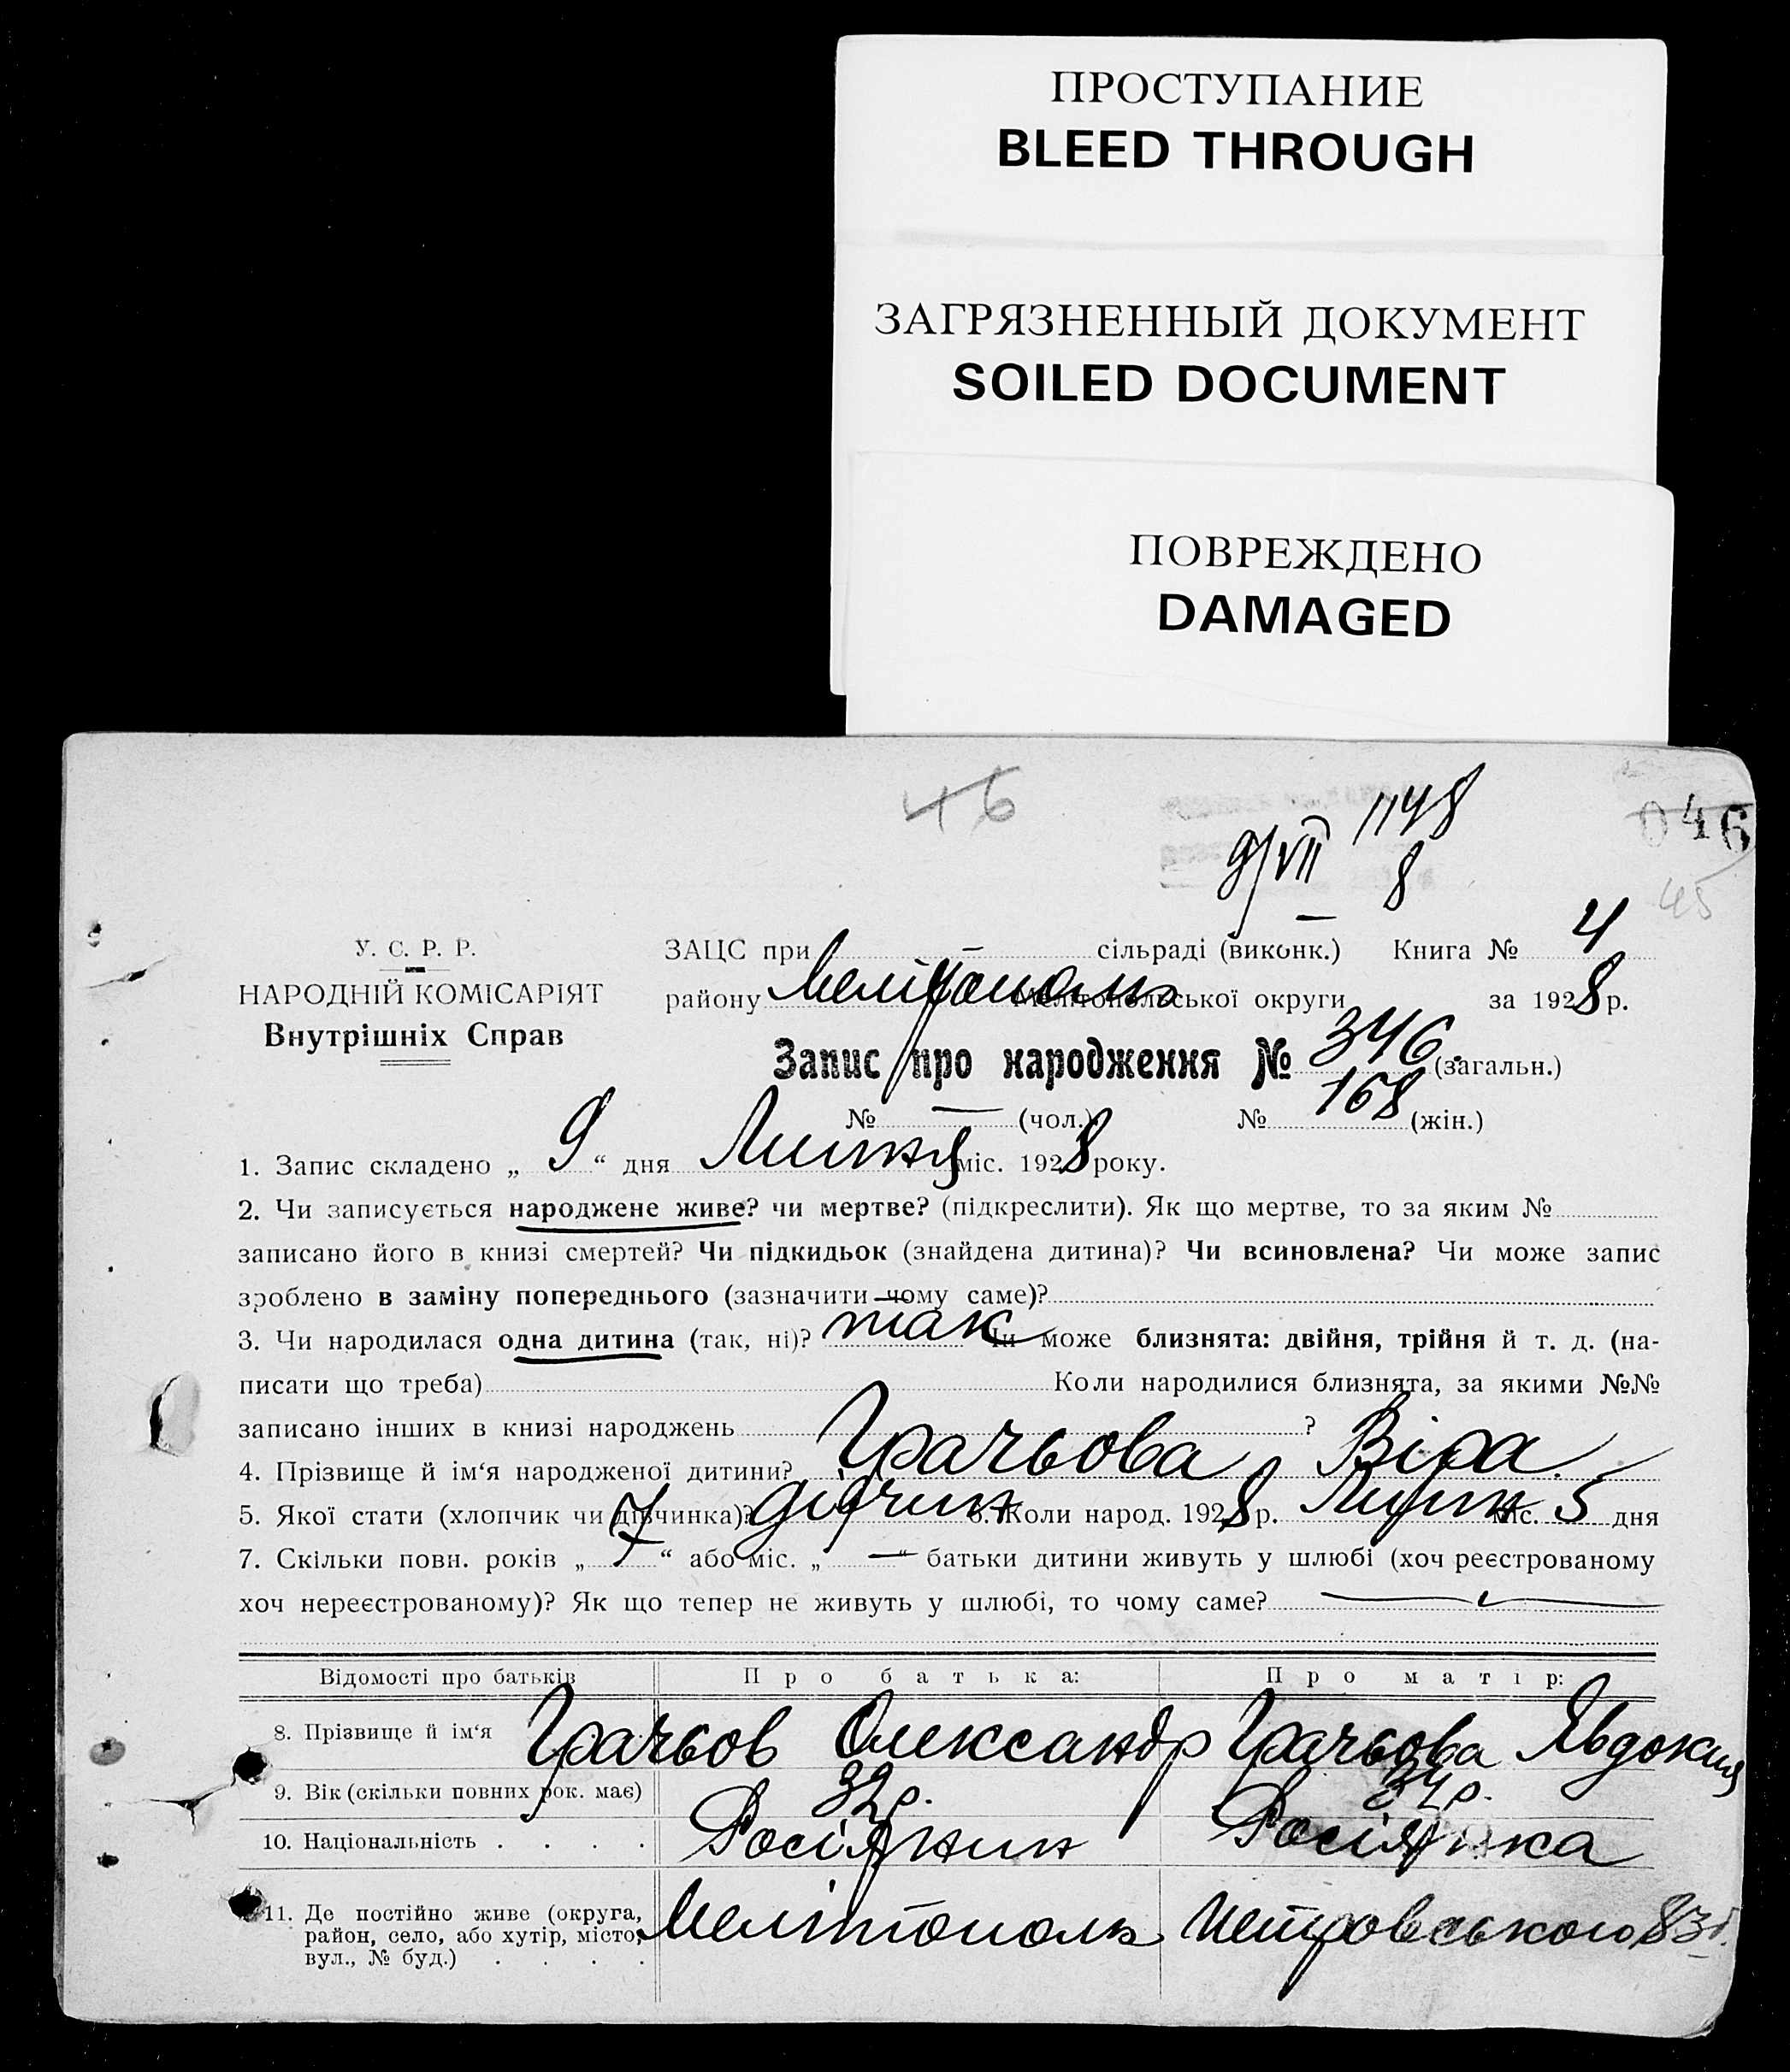 ПРОСТУПАНИЕ
BLEED THROUGH
ЗАГРЯЗНЕННЫЙ ДОКУМЕНТ
SOILED DOCUMENT
ПОВРЕЖДЕНО
DAMAGED
46
9/VII 1148
8
046
45
У. С. Р. Р.
НАРОДНІЙ КОМІСАРІЯТ
Внутрішніх Справ
ЗАЦС при — сільраді (виконк.) Книга № 4
району Мелітополь Мелітопольської округи за 1928 р.
Запис про народження № 346 (загальн.)
№ — (чол.) № 168 (жін.)
1. Запис складено „ 9 “ дня Липня міс. 1928 року.
2. Чи записується народжене живе? чи мертве? (підкреслити). Як що мертве, то за яким №
записано його в книзі смертей? Чи підкидьок (знайдена дитина)? Чи всиновлена? Чи може запис
зроблено в заміну попереднього (зазначити чому саме)?
3. Чи народилася одна дитина (так, ні)? так Чи може близнята: двійня, трійня й т. д. (на-
писати що треба) Коли народилися близнята, за якими №№
записано інших в книзі народжень ?
4. Прізвище й ім‘я народженої дитини? Грачьова Віра
5. Якої стати (хлопчик чи дівчинка)? дівчин 6. Коли народ. 1928 р. Липн міс. 5 дня
7. Скільки повн. років „ 7 “ або міс. „ — “ батьки дитини живуть у шлюбі (хоч реєстрованому
хоч нереєстрованому)? Як що тепер не живуть у шлюбі, то чому саме? —
Відомості про батьків Про батька: Про матір:
8. Прізвище й ім‘я Грачьов Олександр Грачьова Явдокия
9. Вік (скільки повних рок. має) 32 р. 34 р.
10. Національність . . . . Росіянин Росіянка
11. Де постійно живе (округа,
район, село, або хутір, місто, Мелітополь Петровського 83
вул., № буд.) . . . .